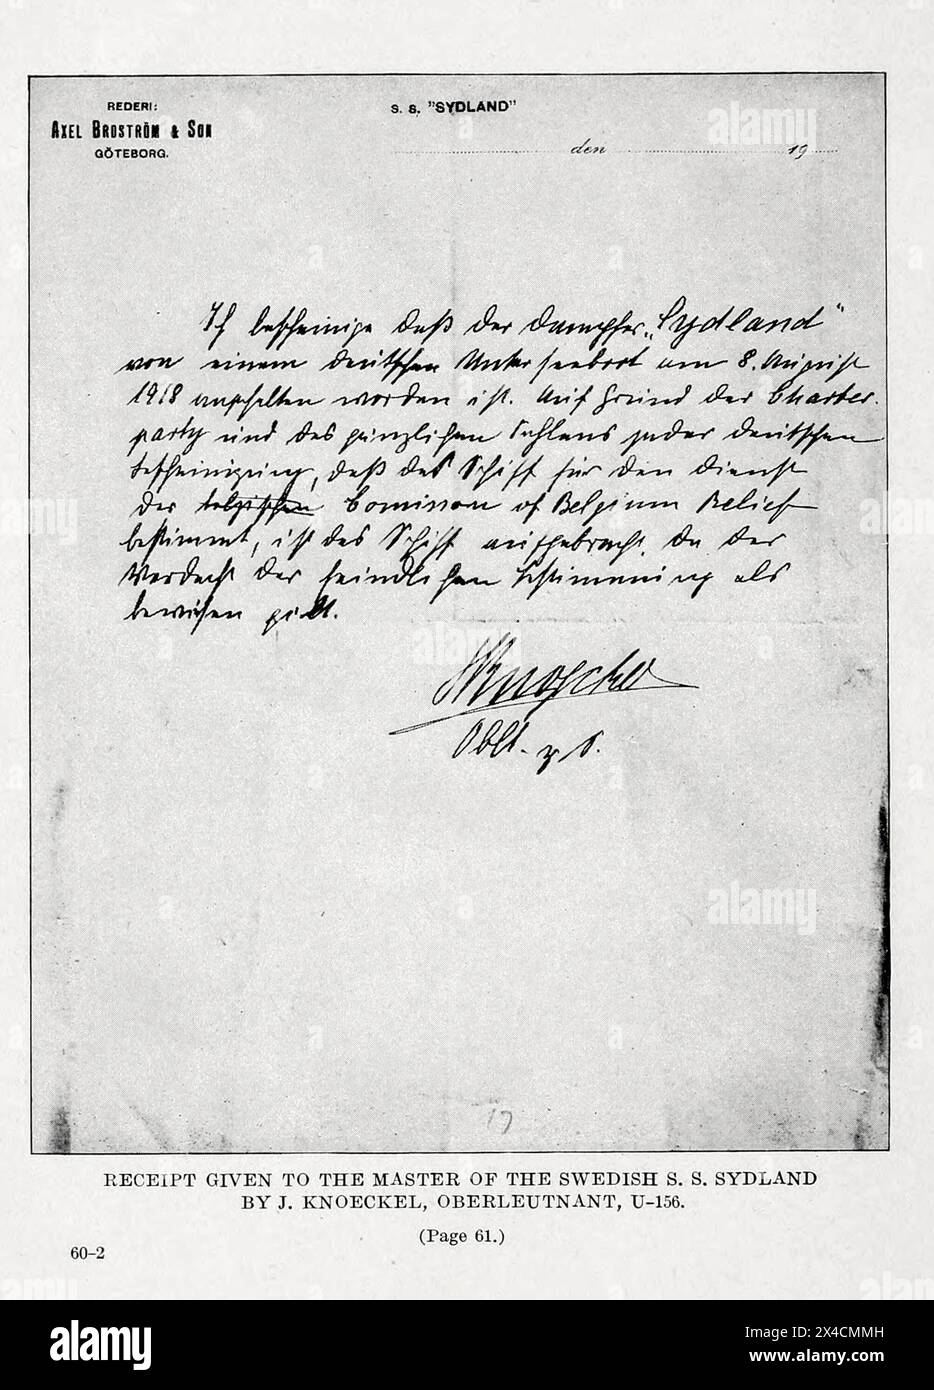 REDERI:
AXEL BROSTRÖM & SON
GÖTEBORG.
S. S. "SYDLAND"
den 19
Ich bescheinige daß der Dampfer „Sydland"
von einem deutschen Unterseeboot am 8. August
1918 angehalten worden ist. Auf Grund der Charter-
party und des gänzlichen Fehlens jeder deutschen
Bescheinigung, daß das Schiff für den Dienst
der belgischen Comission of Belgium Relief
bestimmt, ist das Schiff aufgebracht, da der
Verdacht der feindlichen Bestimmung als
bewiesen gilt.
Knoeckel
Oblt. z. S.
17
RECEIPT GIVEN TO THE MASTER OF THE SWEDISH S. S. SYDLAND
BY J. KNOECKEL, OBERLEUTNANT, U-156.
(Page 61.)
60-2
alamy
Image ID: 2X4CMMH
www.alamy.com